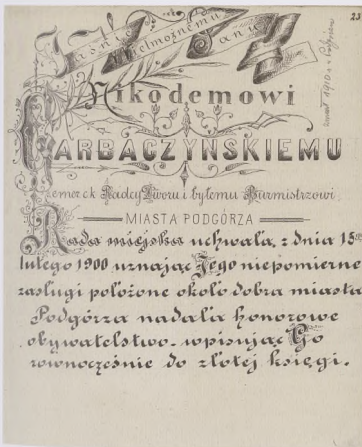 23
Jaśnie Wielmożnemu Panu
Nikodemowi
GARBACZYŃSKIEMU
emer. c.k. Radcy Dworu i byłemu Burmistrzowi
MIASTA PODGÓRZA
Rada miejska uchwałą z dnia 15go
lutego 1900 uznając Jego niepomierne
zasługi położone około dobra miasta
Podgórza nadała honorowe
obywatelstwo wpisując Go
równocześnie do złotej księgi.
zmarł 1910 r. w